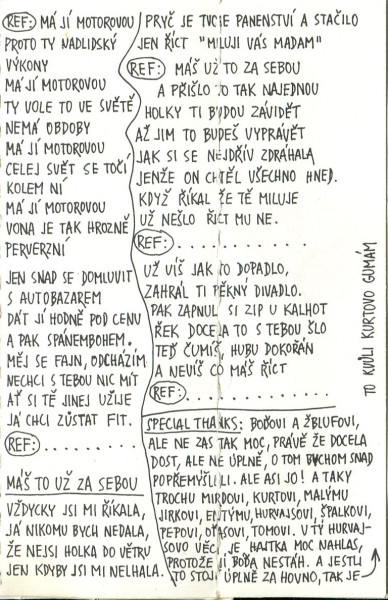 REF: MÁ JÍ MOTOROVOU
PROTO TY NADLIDSKÝ
VÝKONY
MÁ JÍ MOTOROVOU
TY VOLE TO VE SVĚTĚ
NEMÁ OBDOBY
MÁ JÍ MOTOROVOU
CELEJ SVĚT SE TOČÍ
KOLEM NÍ
MÁ JÍ MOTOROVOU
VONA JE TAK HROZNĚ
PERVERZNÍ
JEN SNAD SE DOMLUVIT
S AUTOBAZAREM
DÁT JÍ HODNĚ POD CENU
A PAK SPÁNEMBOHEM.
MĚJ SE FAJN, ODCHÁZÍM
NECHCI S TEBOU NIC MÍT
AŤ SI TĚ JINEJ UŽIJE
JÁ CHCI ZŮSTAT FIT.
REF: . . . . . . . . .
MÁŠ TO UŽ ZA SEBOU
VŽDYCKY JSI MI ŘÍKALA,
JÁ NIKOMU BYCH NEDALA,
ŽE NEJSI HOLKA DO VĚTRU
JEN KDYBY JSI MI NELHALA.
PRYČ JE TVOJE PANENSTVÍ A STAČILO
JEN ŘÍCT "MILUJI VÁS MADAM"
REF: MÁŠ UŽ TO ZA SEBOU
A PŘIŠLO TO TAK NAJEDNOU
HOLKY TI BUDOU ZÁVIDĚT
AŽ JIM TO BUDEŠ VYPRÁVĚT
JAK SI SE NEJDŘÍV ZDRÁHALA
JENŽE ON CHTĚL VŠECHNO HNED.
KDYŽ ŘÍKAL ŽE TĚ MILUJE
UŽ NEŠLO ŘÍCT MU NE.
REF: . . . . . . . . . . .
UŽ VÍŠ JAK TO DOPADLO,
ZAHRÁL TI PĚKNÝ DIVADLO.
PAK ZAPNUL SI ZIP U KALHOT
ŘEK DOCELA TO S TEBOU ŠLO
TEĎ ČUMÍŠ, HUBU DOKOŘÁN
A NEVÍŠ CO MÁŠ ŘÍCT
REF: . . . . . . . . . . .
SPECIAL THANKS: BOĎOVI A ŽBLUFOVI,
ALE NE ZAS TAK MOC, PRÁVĚ ŽE DOCELA
DOST, ALE NE ÚPLNĚ, O TOM BYCHOM SNAD
POPŘEMÝŠLELI. ALE ASI JO! A TAKY
TROCHU MIRDOVI, KURTOVI, MALÝMU
JIRKOVI, ŠPALKOVI,
PEPOVI, TOMOVI. V TÝ HURVAJ-
SOVO VĚCI JE HAJTKA MOC NAHLAS,
PROTOŽE JI BOĎA NESTÁH. A JESTLI
TO STOJÍ ÚPLNĚ ZA HOVNO, TAK JE
TO KVŮLI KURTOVO GUMÁM